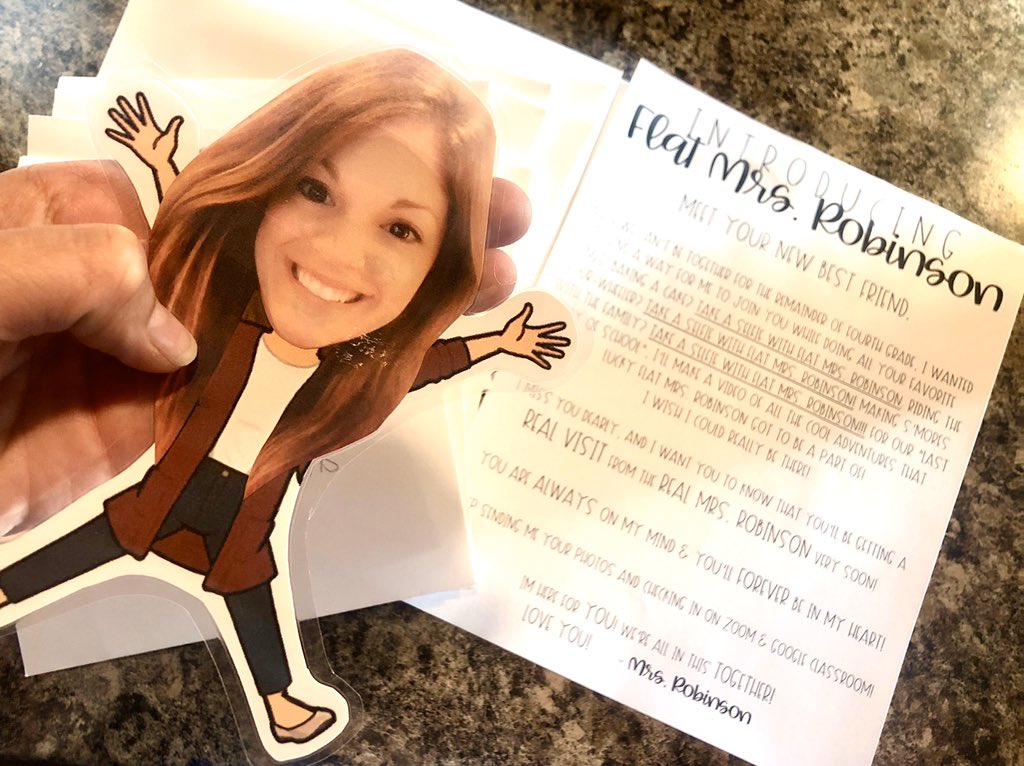 INTRODUCING
Flat Mrs. Robinson
MEET YOUR NEW BEST FRIEND.
WE CAN'T BE TOGETHER FOR THE REMAINDER OF FOURTH GRADE, I WANTED
A WAY FOR ME TO JOIN YOU WHILE DOING ALL YOUR FAVORITE
BAKING A CAKE? TAKE A SELFIE WITH FLAT MRS. ROBINSON. RIDING THE
WHEELER? TAKE A SELFIE WITH FLAT MRS. ROBINSON! MAKING S'MORES
WITH THE FAMILY? TAKE A SELFIE WITH FLAT MRS. ROBINSON!!! FOR OUR "LAST
OF SCHOOL", I'LL MAKE A VIDEO OF ALL THE COOL ADVENTURES THAT
LUCKY FLAT MRS. ROBINSON GOT TO BE A PART OF!
I WISH I COULD REALLY BE THERE!
I MISS YOU DEARLY, AND I WANT YOU TO KNOW THAT YOU'LL BE GETTING A
REAL VISIT FROM THE REAL MRS. ROBINSON VERY SOON!
YOU ARE ALWAYS ON MY MIND & YOU'LL FOREVER BE IN MY HEART!
SENDING ME YOUR PHOTOS AND CHECKING IN ON ZOOM & GOOGLE CLASSROOM!
I'M HERE FOR YOU! WE'RE ALL IN THIS TOGETHER!
LOVE YOU!
- Mrs. Robinson